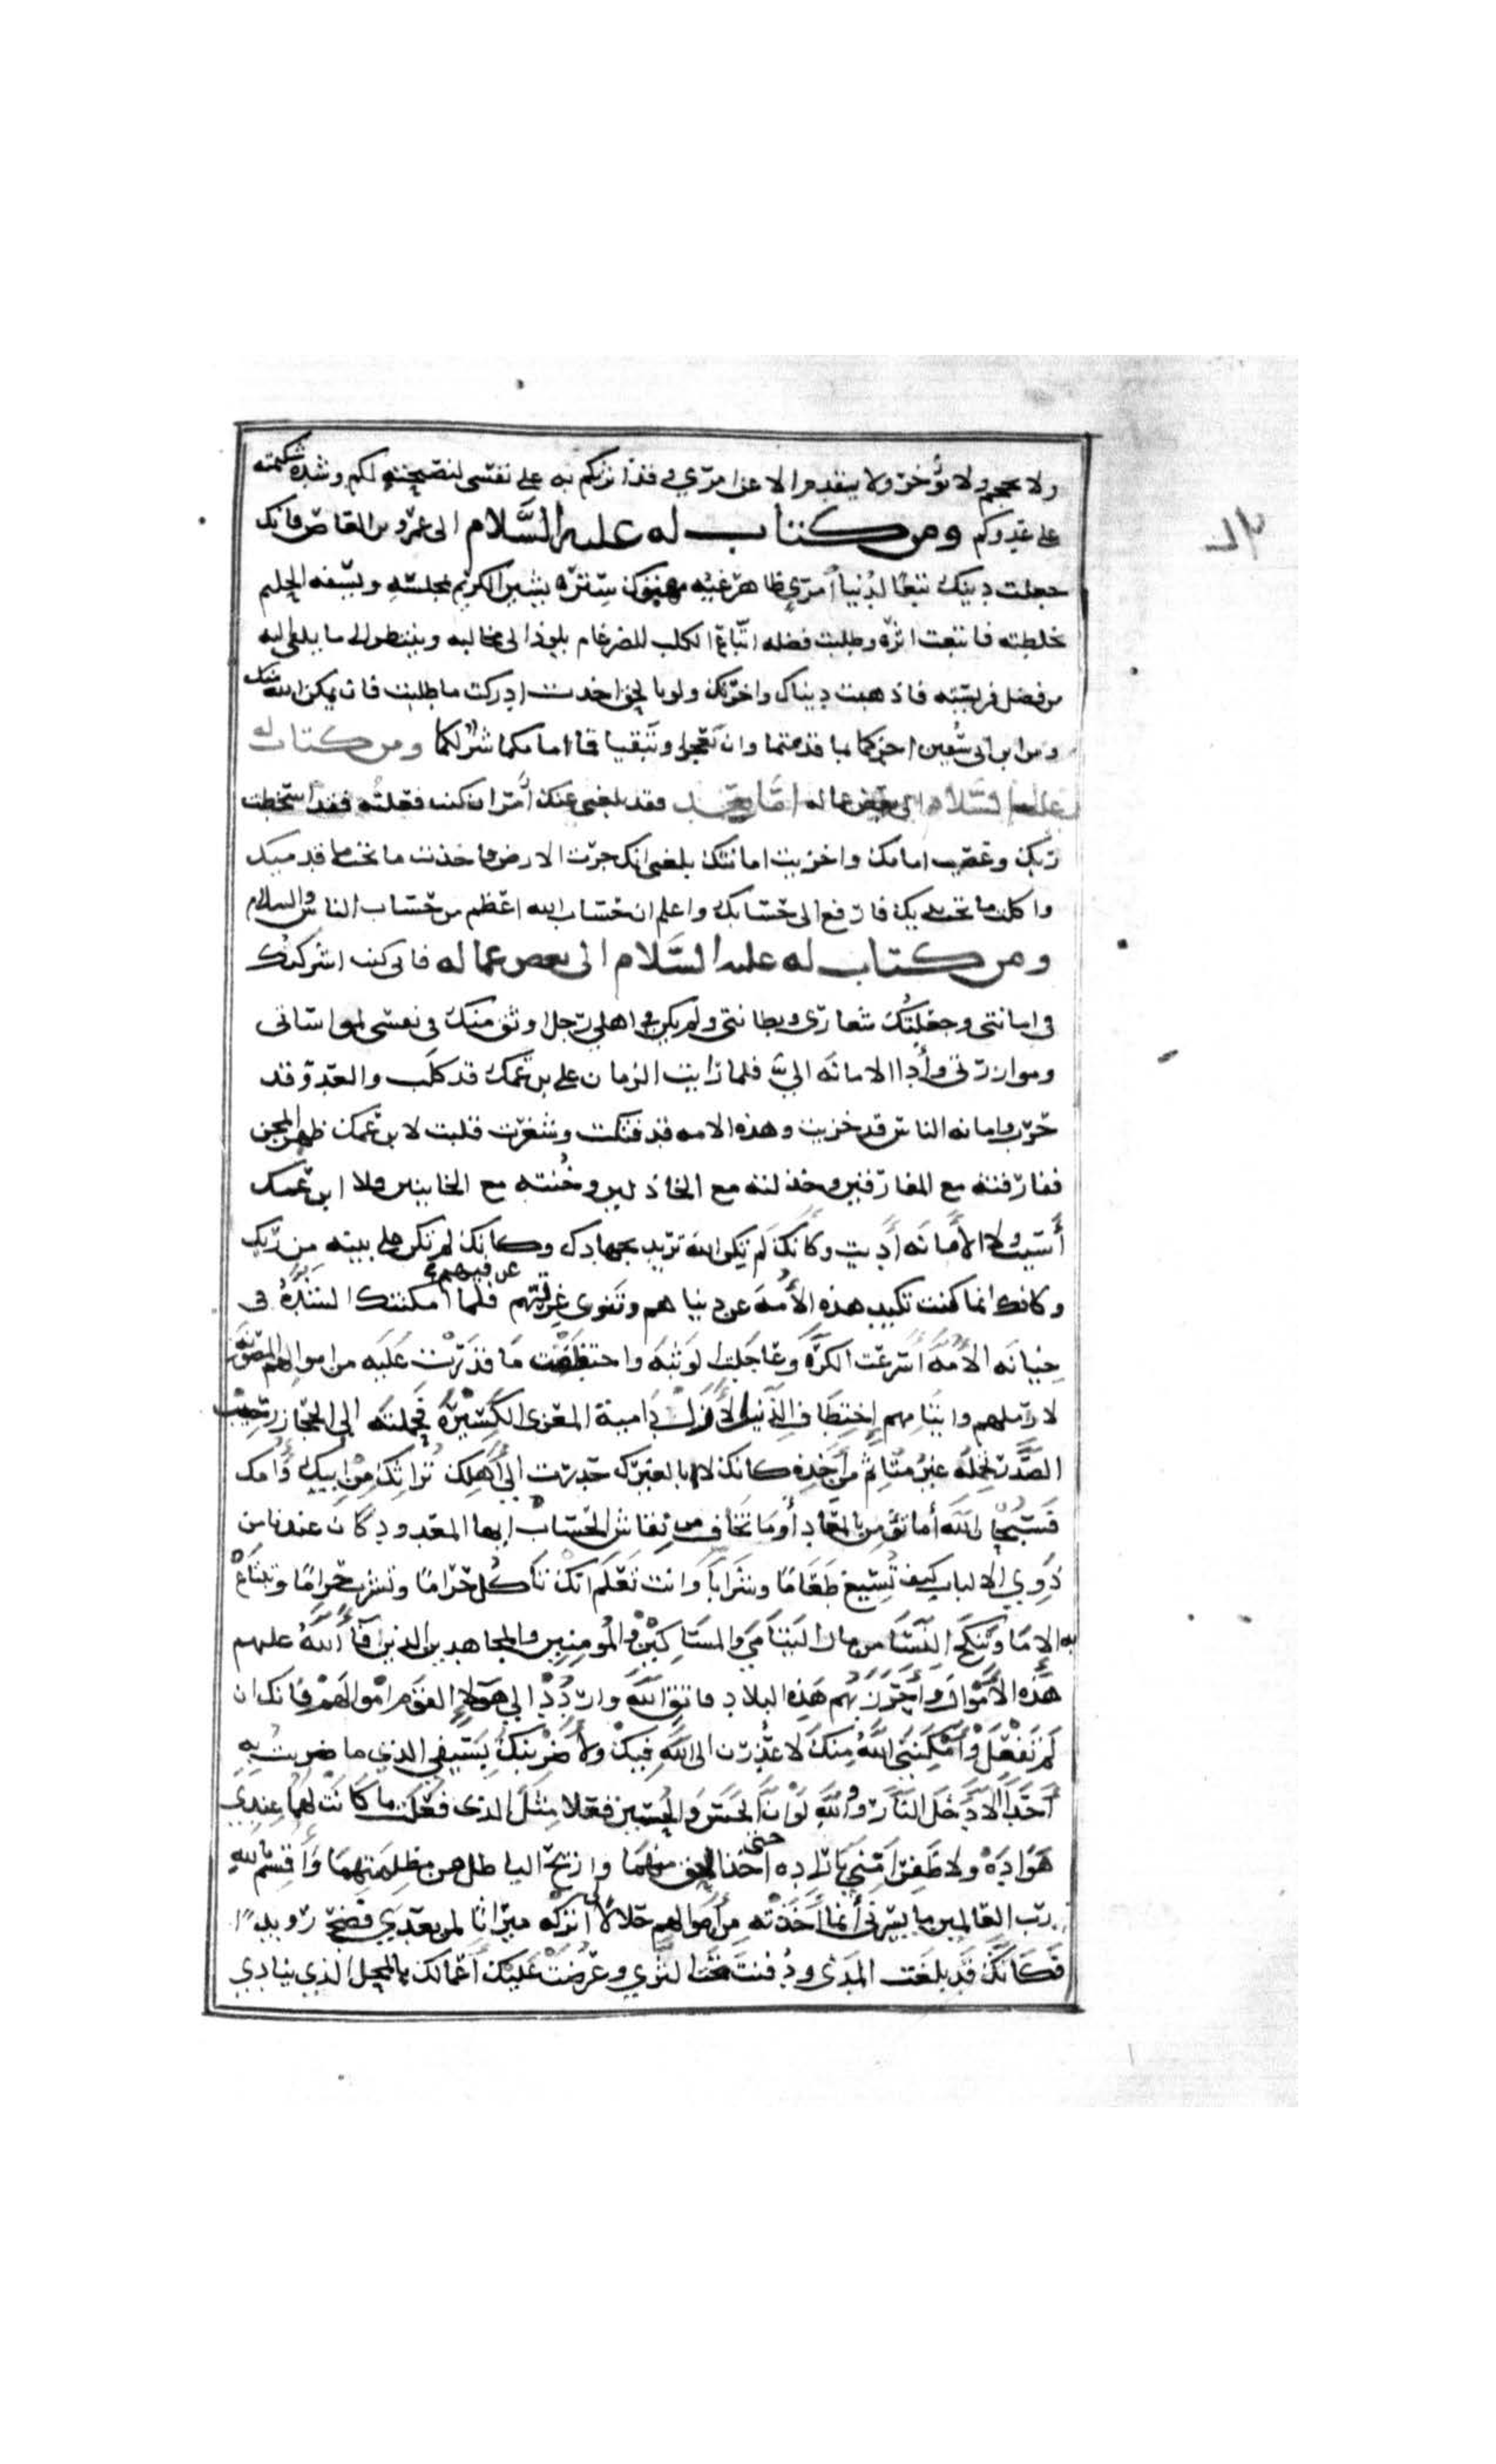 ولا يحجم ولا يؤخر ولا يقدم الا عن امري وقد اثرتكم به على نفسي لنصيحته لكم وشدة شكيمته
على عدوكم ومن كتاب له عليه السَّلام الى عمرو بن العاص فانك
جعلت دينك تبعًا لدُنيا أمرئٍ ظاهر غيّه مهتوك ستره يشين الكريم بمجلسه ويسفه الحليم
بخلطته فاتبعت اثره وطلبت فضله اتباع الكلب للضرغام يلوذ الى مخالبه وينتظر الى ما يلقى اليه
من فضل فريسته فاذهبت دنياك واخرتك ولو بالحق اخذت ادركت ما طلبت فان يمكن الله منك
ومن ابن ابي سفين اجزكما بما قدمتما وان تعجزا وتبقيا فما امامكما شرٌّ لكما ومن كتاب له
عليه السَّلام الى بعض عماله امّا بعد فقد بلغني عنك أمر ان كنت فعلته فقد اسخطت
ربك وعصيت امامك واخزيت امانتك بلغني انك جردت الارض فاخذت ما تحت قدميك
واكلت ما تحت يديك فارفع الى حسابك واعلم ان حساب الله اعظم من حساب الناس والسلام
ومن كتاب له عليه السَّلام الى بعض عماله فاني كنت اشركتك
في امانتي وجعلتُك شعاري وبطانتي ولم يكن في اهلي رجل اوثق منك في نفسي لمواساتي
وموازرتي وأدا الامانه اليَّ فلما رايت الزمان على ابن عمك قد كلَب والعدوّ قد
حرب وامانه الناس قد خزيت وهذه الامه قد فنكت وشغرت قلبت لابن عمك ظهر المجن
ففارقته مع المفارقين وخذلته مع الخاذلين وخُنته مع الخاينين فلا ابن عمك
أسيت ولا الأمانَه أدّيت وكأنك لم تكن الله تريد بجهادك وكانك لم تكن على بينه من ربك
وكانك انما كنت تكيد هذه الأُمهَ عن دنياهم وتنوي غرتهم عن فيهم فلما أمكنتك الشدةُ في
خيانه الأمّهَ أسرعت الكرَّه وعاجلت الوثبَه واختطفت ما قدَرْت عليه من اموالهم المصونه
لاراملهم وايتامهم إختطاف الذيب الأزلّ داميةَ المعزى الكسيره فحملته الى الحجاز رحيب
الصَّدر تحمله غير متأثّم من أخذه كانك لا ابا لغيرك حدرت الى أهلك تُراثك من ابيك وأمك
فسبحان الله أما تؤمن بالمعاد أوما تخاف من نقاش الحساب ايها المعدود كان عندنا من
ذوي الالباب كيف تُسيغ طعامًا وشرابًا وانت تعلم انك تأكُل حرامًا وتشرب حرامًا وتبتاع
به الإما وتنكح النسَا من مال اليتامَى والمساكين والمُومنين والمجاهدين الذين أفآ اللّهُ عليهم
هذه الأموال وأحرز بهم هذه البلاد فاتق اللّه واردُد الى هَولاء القوم اموالهم فانك ان
لم تفعَل وأمكنني اللّهُ منكَ لاعذرنّ الى اللّهِ فيك ولأضربنّك بسيفي الذي ما ضربتُ به
أحَدًا الا دخل النار وو اللّهِ لو أنّ الحسَن والحسين فعلا مثل الذي فعلت ما كانت لهُما عندي
هَوادهْ ولا ظَفِرا منّي بارادِه حتى آخذ الحق منهما وازيح الباطل من مظلمتهما وأُقسم باللهِ
ربّ العالمين ما يسرني أنّما أخذته من أموالهم حلالاً لي أتركه ميراثًا لمن بعدي فضحّ رويدًا
فكأنّك قد بلغت المدَى ودُفنتَ تحت الثرى وعُرضت عليك أعمالك بالمحل الذي ينادي